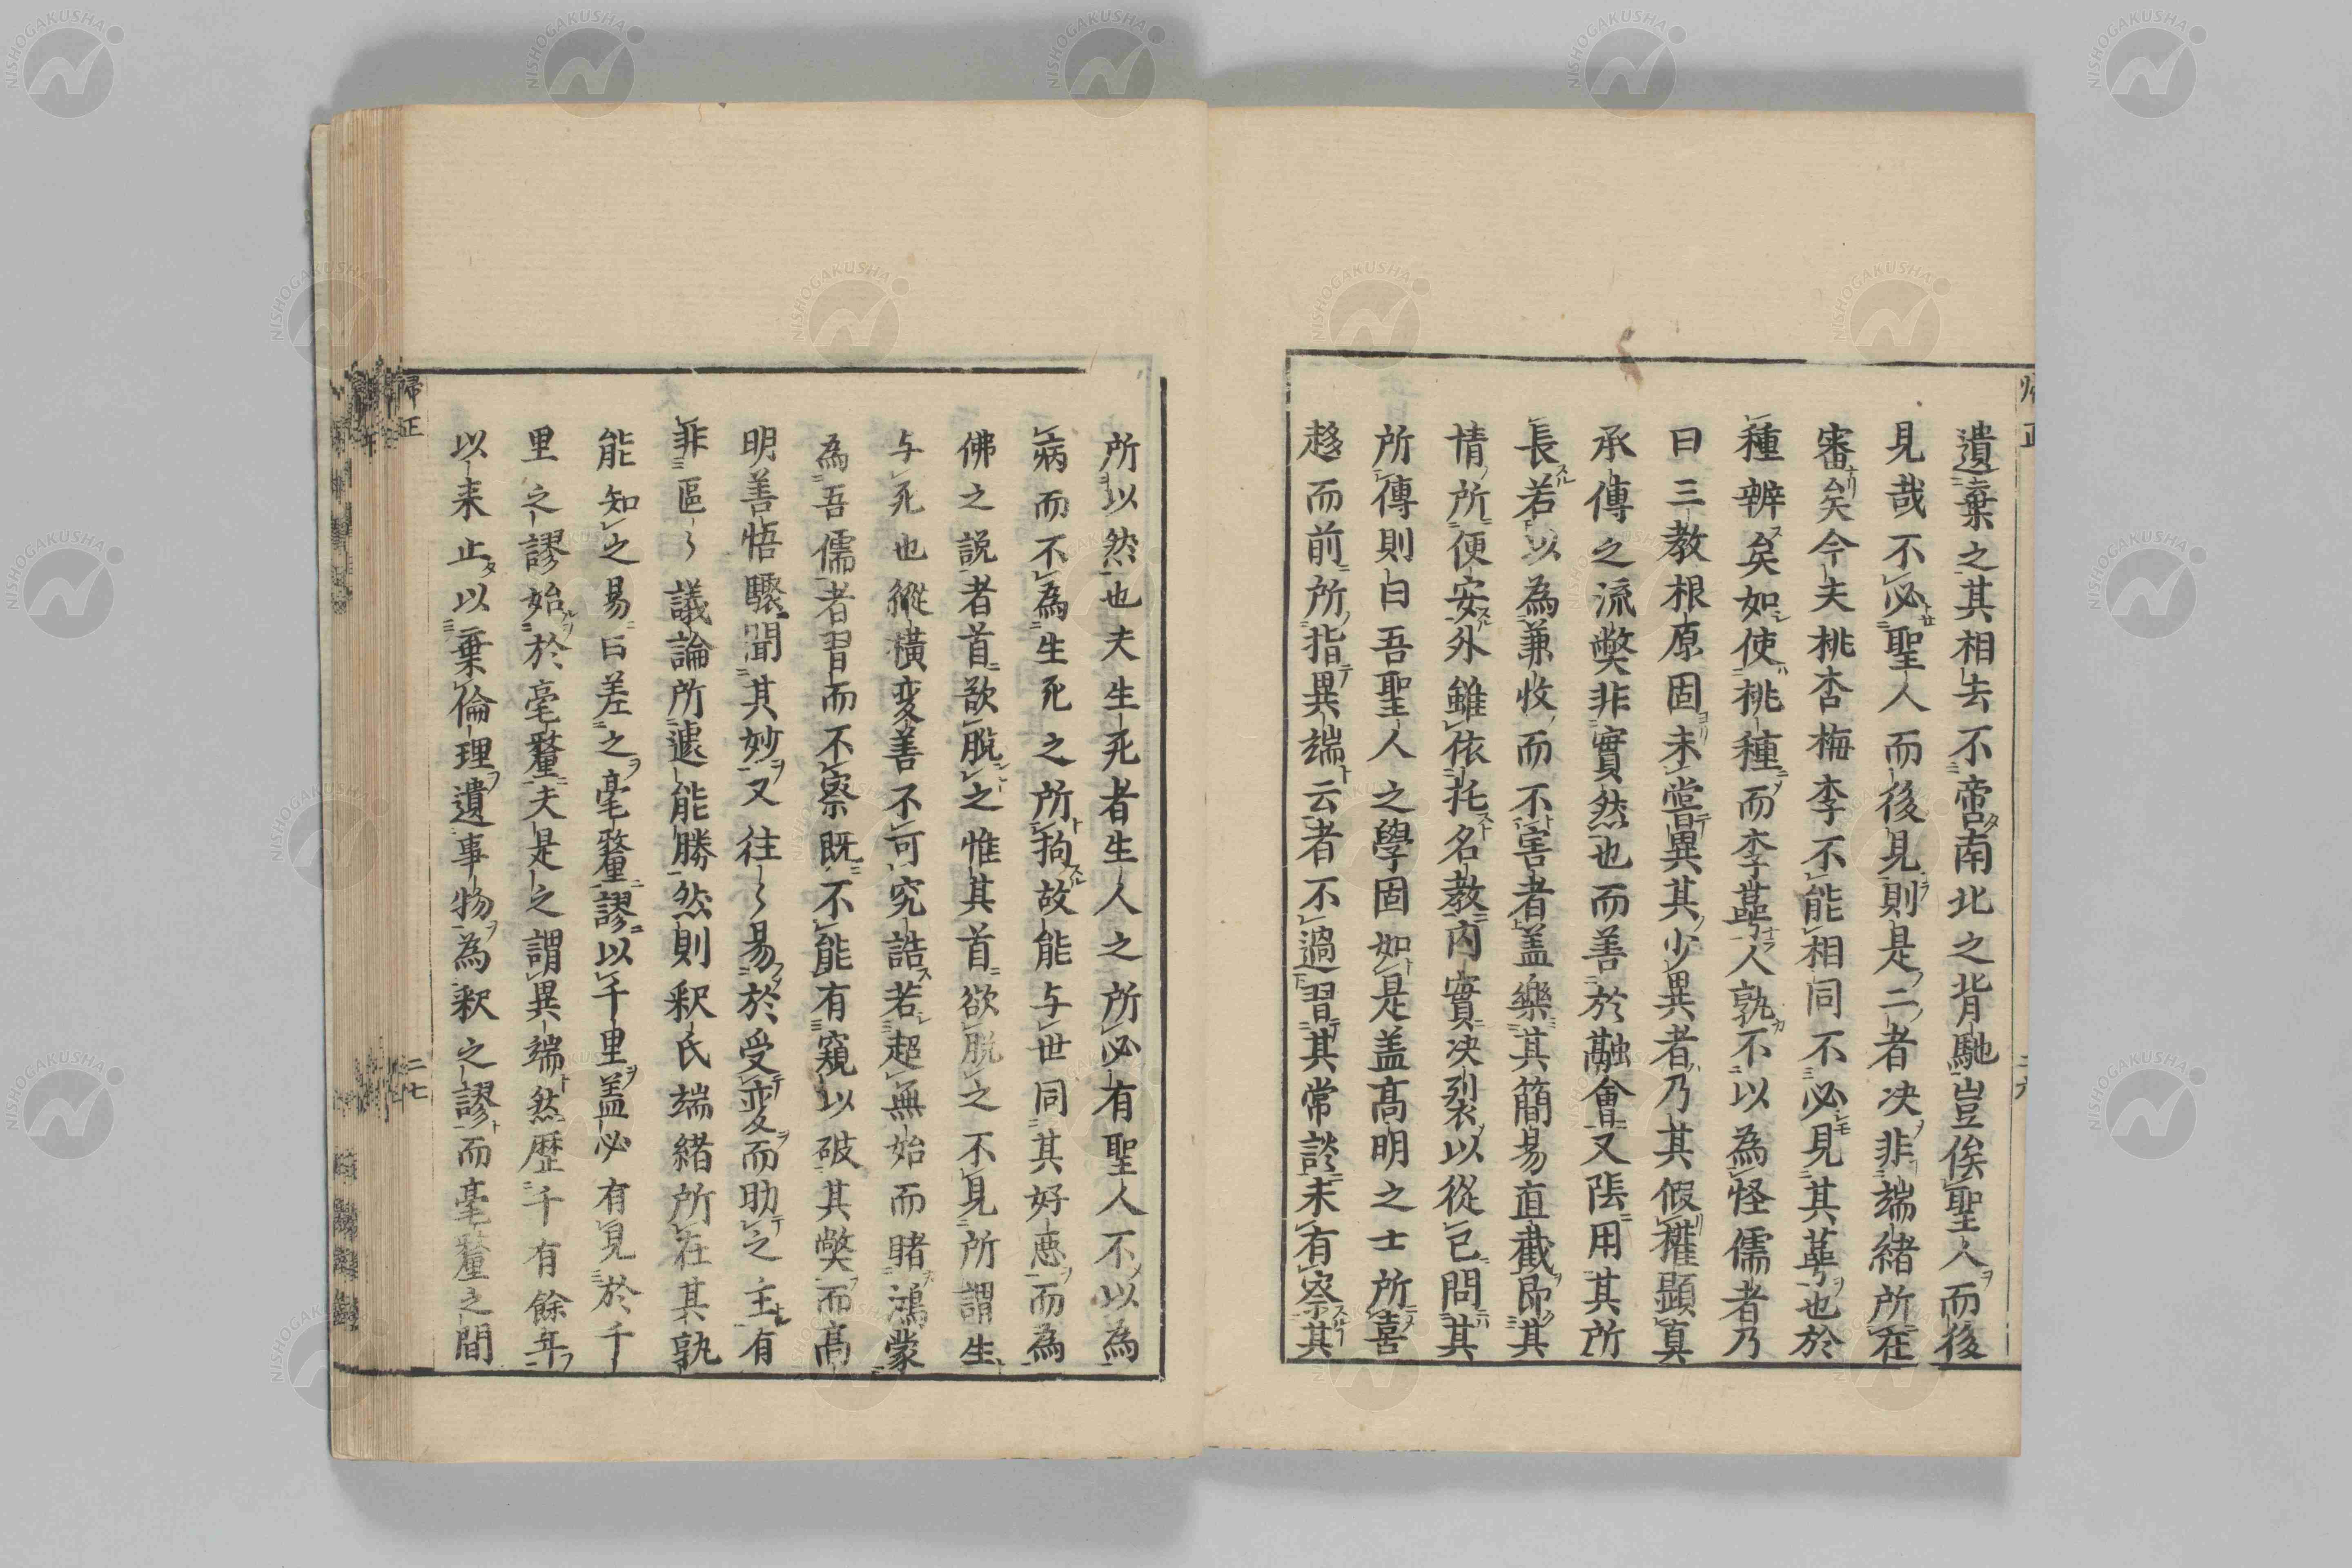 遺棄之其相去不啻南北之背馳豈俟聖人而後
見哉不必聖人而後見則是二者决非端緒所在
審矣今夫桃杏梅李不能相同不必見其蕚也於
種辨矣如使桃種而李蕚人孰不以為怪儒者乃
曰三教根原固未嘗異其少異者乃其假權顯真
承傳之流弊非實然也而善於融會又陈用其所
長若以為兼收而不害者盖樂其簡易直截即其
情所便安外雖依托名教内實决裂以從已問其
所傳則曰吾聖人之學固如是盖高明之士所喜
趍而前所指異端云者不過習其常談未有察其
所以然也夫生死者生人之所必有聖人不以為
病而不為生死之所拘故能与世同其好悪而為
佛之説者首欲脱之惟其首欲脱之不見所謂生
与死也縱横变善不可究詰若超無始而睹鴻蒙
為吾儒者習而不察既不能有窺以破其弊而高
明善悟驟聞其妙又往〻易於受变而助之主有
非區〻議論所遽能勝然則釈氏端緒所在其孰
能知之易曰差之毫釐謬以千里盖必有見於千
里之謬始於毫釐夫是之謂異端然歴千有餘年
以来止以棄倫理遺事物為釈之謬而毫釐之間
帰正
二七
NISHOGAKUSHA